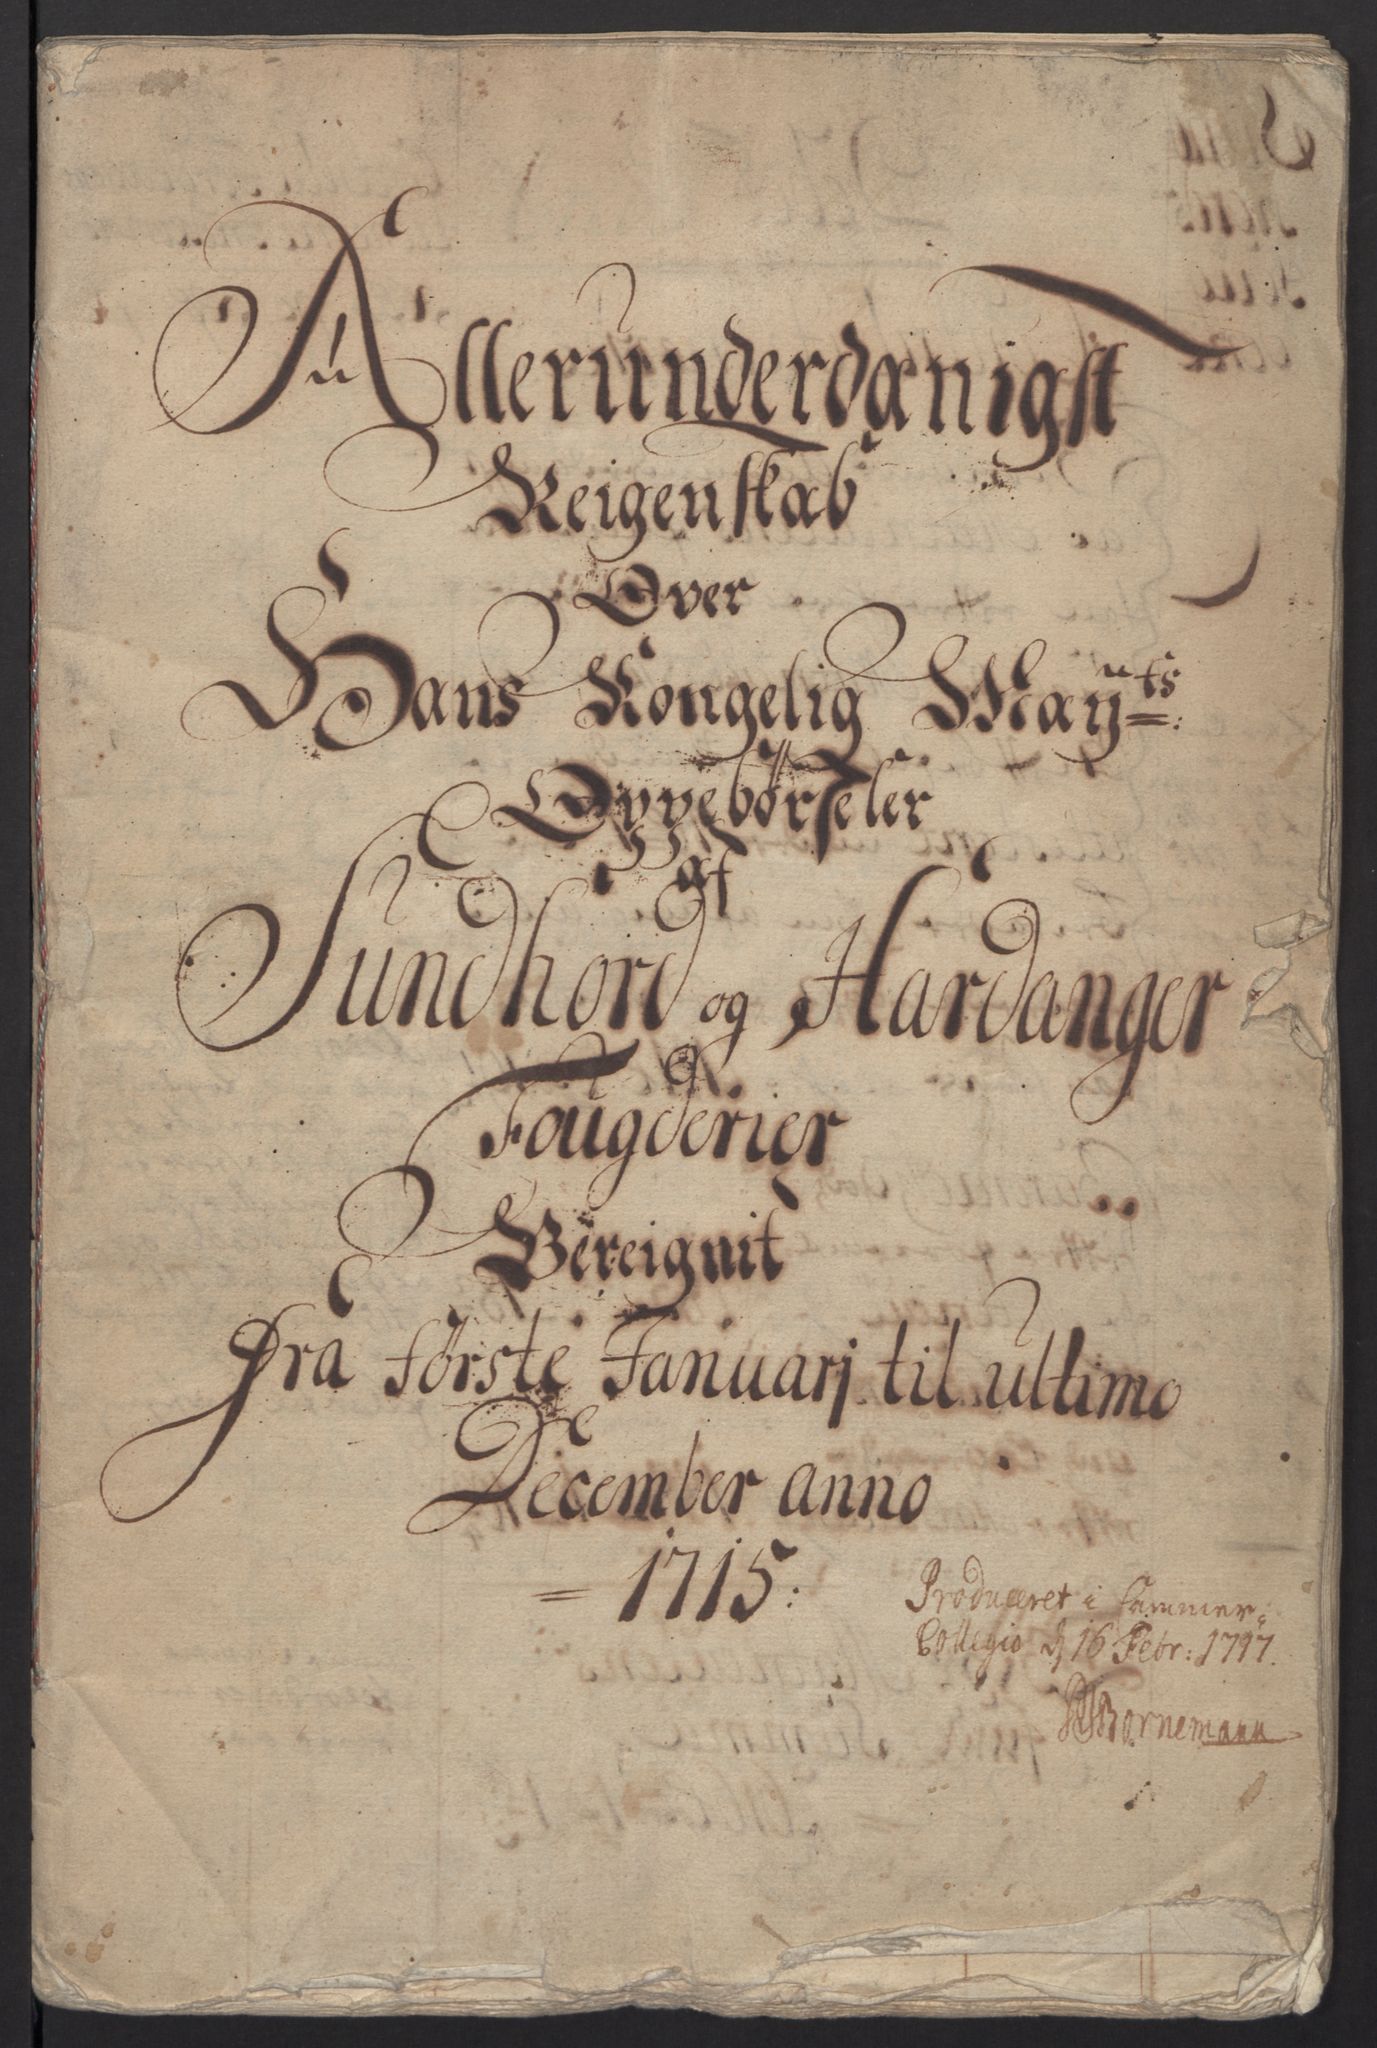 Allerunderdanigst
Reigenskab
Over
Hans Kongelig Mayts:
Oppebørseler
af
Sundhord og Hardanger
Fougderier
Bereignit
Fra første Januarj til ultimo
December anno
= 1715:
Produceret i Cammer-
Collegio d 16 Febr: 1717.
Bornemann